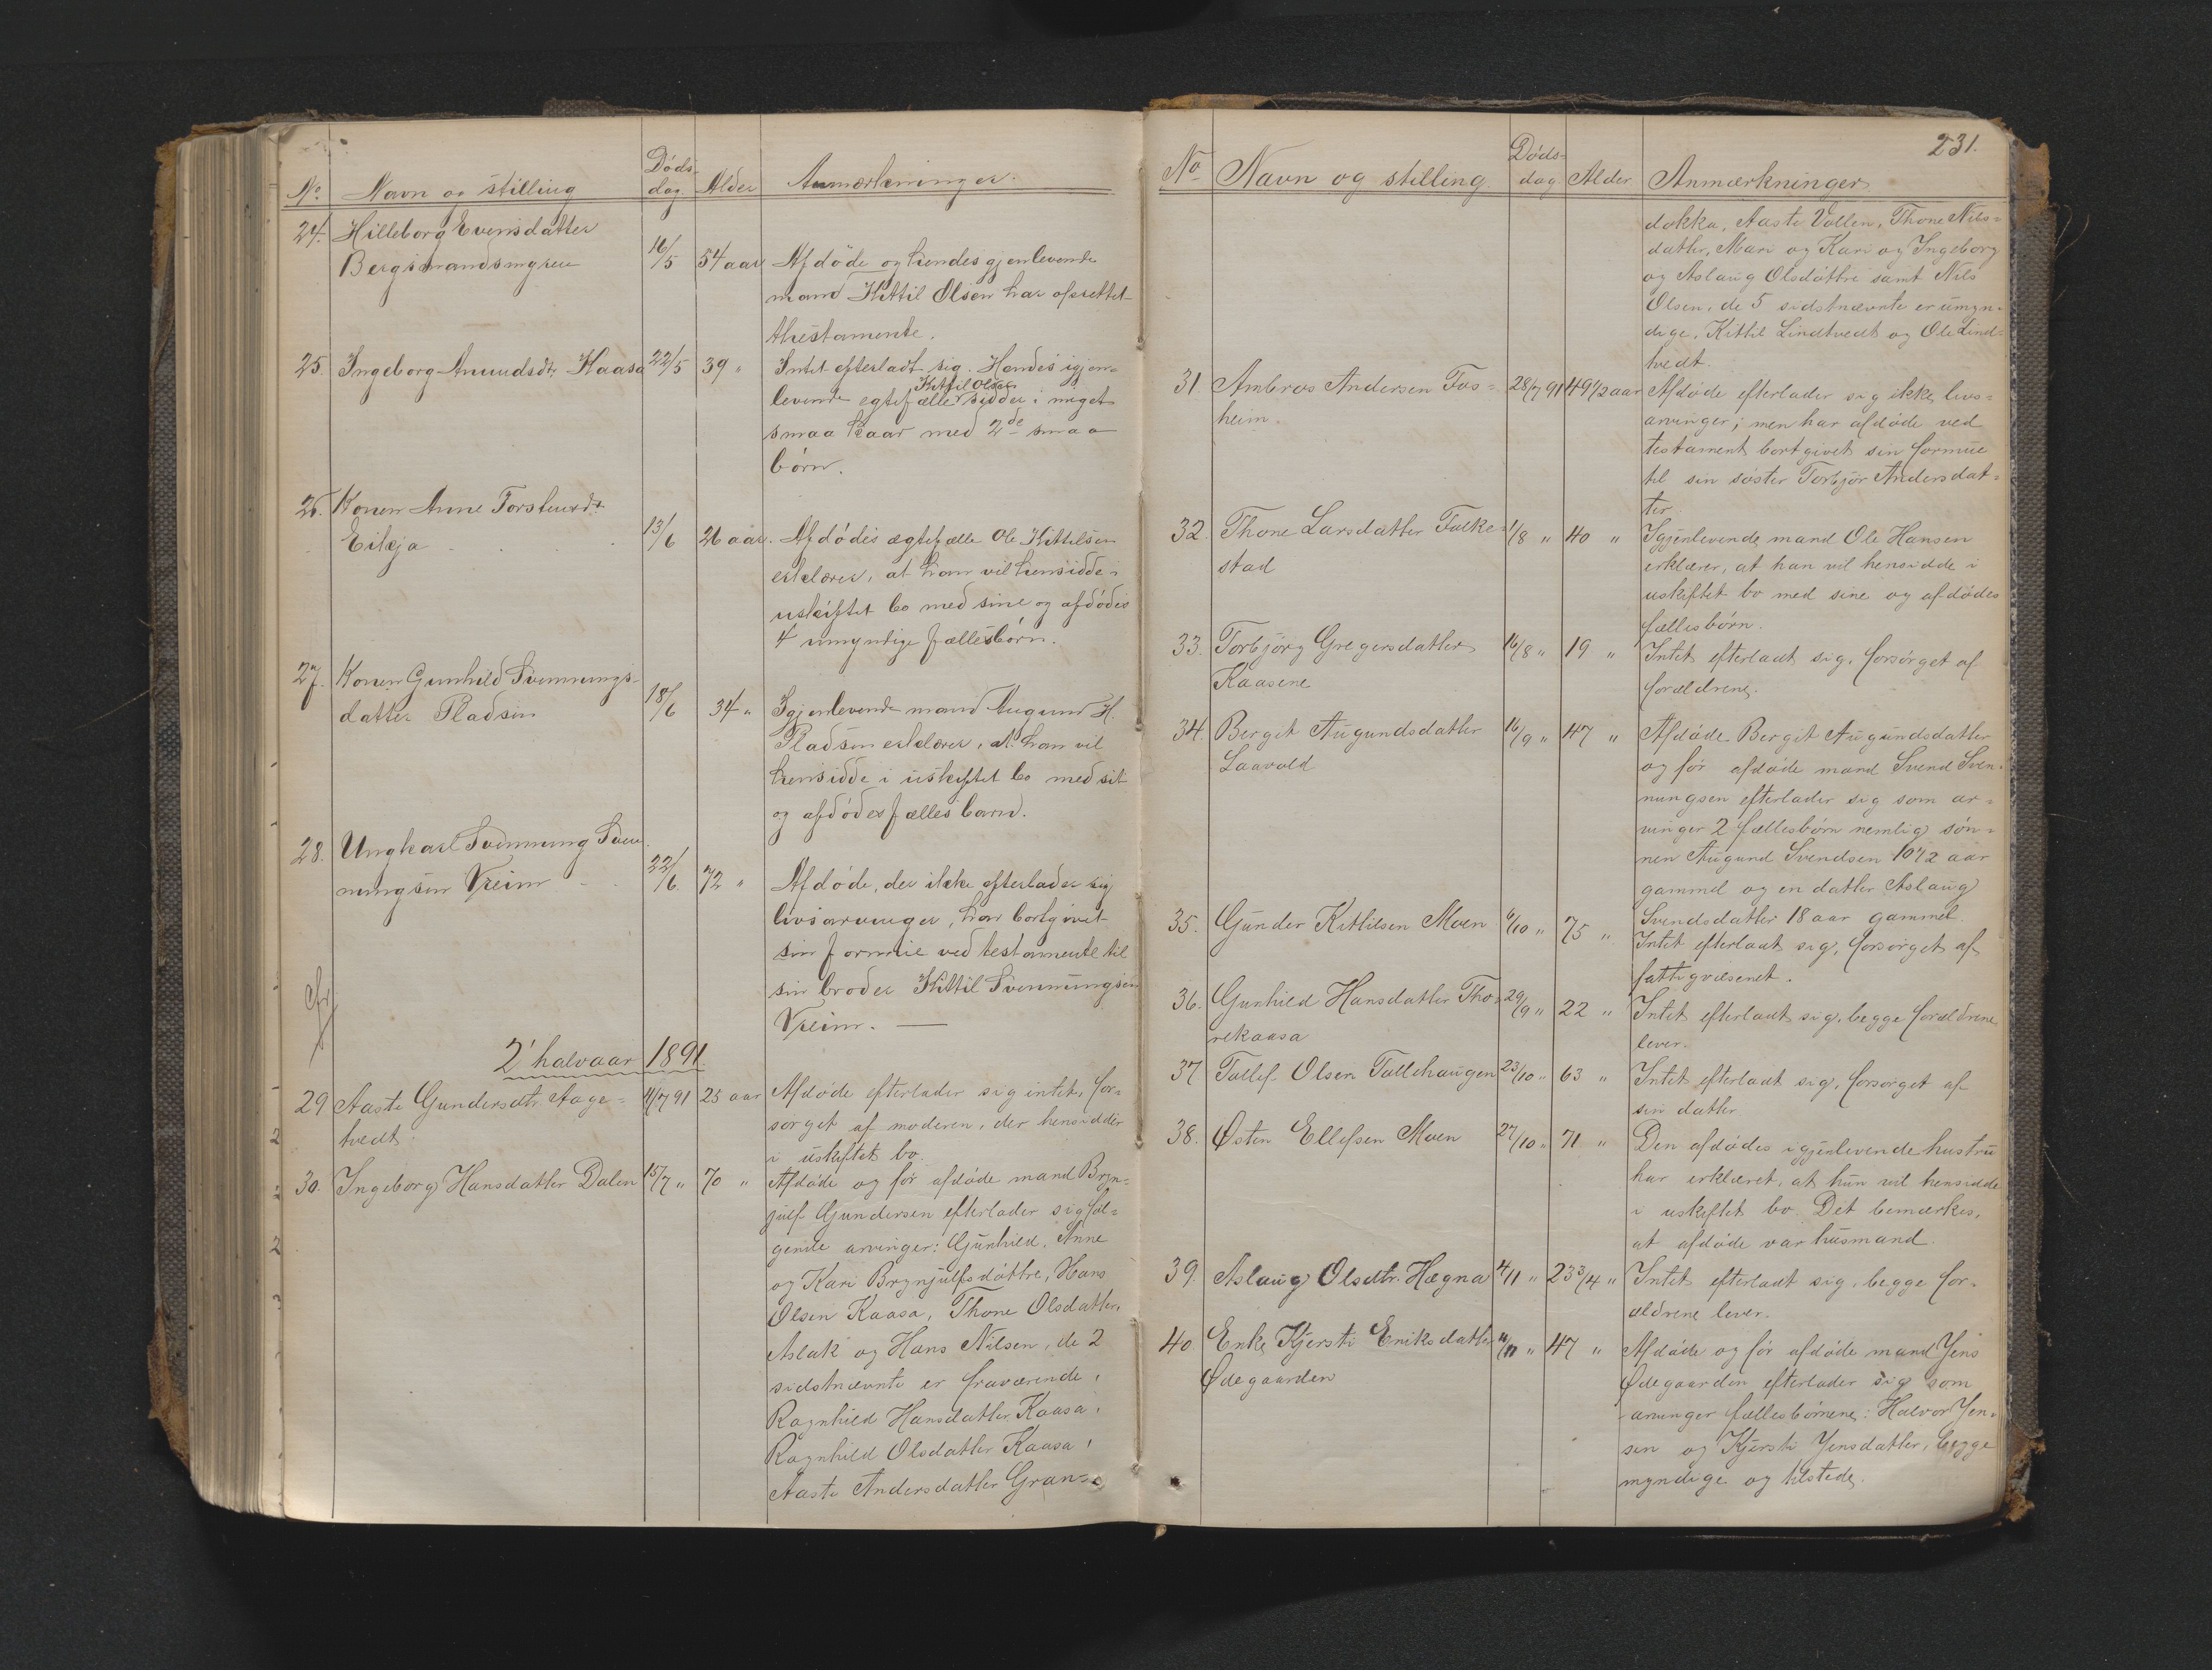 No. Navn og stilling Döds-dag. Alder Anmærkninger.
24. Hilleborg Evensdatter
Bergsmandsmyren 16/5 54 aar Afdöde og hendes gjenlevende
mand Kittil Olsen har oprettet
thestamente.
25. Ingeborg Amundsdt. Kaasa 22/5 39 " Intet efterladt sig. Hendes igjen-
levende egtefælle Kittil Olsen sidder i meget
smaa kaar med 2de smaa
börn.
26. Konen Anne Torstensdt.
Eikja 13/6 26 aar. Afdödes ægtefælle Ole Kittilsen
erklærer, at han vil hensidde i
uskiftet bo med sine og afdödes
4 umyndige fællesbörn.
27. Konen Gunhild Svennungs-
datter Pladsen 18/6 34 " Igjenlevende mand Augund H.
Pladsen erklærer, at han vil
hensidde i uskiftet bo med sit
og afdödes fælles barn.
28. Ungkarl Svennung Sven-
nungsen Vreim 22/6 72 " Afdöde, der ikke efterlader sig
livsarvinger, har bortgivet
sin formue ved testamente til
sin broder Kittil Svennungsen
Vreim. —
2' halvaar 1891.
29 Aaste Gundersdtr. Aage- 11/7 91 25 aar Afdöde efterlader sig intet, for-
tvedt. sörget af moderen, der hensidder
i uskiftet bo.
30. Ingeborg Hansdatter Dalen 15/7 " 70 " Afdöde og för afdöde mand Bryn-
julf Gundersen efterlader sig föl-
gende arvinger: Gunhild, Anne
og Kari Brynjulfsdöttre, Hans
Olsen Kaasa, Thone Olsdatter,
Aslak og Hans Nilsen, de 2
sidstnævnte er fraværende,
Ragnhild Hansdatter Kaasa,
Ragnhild Olsdatter Kaasa,
Aaste Andersdatter Gran-
231.
No Navn og stilling Döds-dag. Alder Anmærkninger
dokka, Aaste Vallen, Thone Nils-
datter, Mari og Kari og Ingeborg
og Aslaug Olsdöttre samt Nils
Olsen, de 5 sidstnævnte er umyn-
dige, Kittil Lindtvedt og Ole Lind-
tvedt.
31. Ambros Andersen Fos- 28/7 91 49 1/2 aar Afdöde efterlader sig ikke livs-
heim. arvinger; men har afdöde ved
testament bortgivet sin formue
til sin söster Torbjör Andersdat-
ter.
32. Thone Larsdatter Falke- 1/8 " 40 " Igjenlevende mand Ole Hansen
stad erklærer, at han vil hensidde i
uskiftet bo med sine og afdödes
fællesbörn.
33. Torbjörg Gregersdatter 16/8 " 19 " Intet efterladt sig, forsörget af
Kaasene forældrene.
34. Bergit Augundsdatter 16/9 " 47 " Afdöde Bergit Augundsdatter
Laavald og för afdöde mand Svend Sven-
nungsen efterlader sig som ar-
vinger 2 fællesbörn nemlig søn-
nen Augund Svendsen 10 1/2 aar
gammel og en datter Aslaug
Svendsdatter 18 aar gammel.
35. Gunder Kittilsen Moen 6/10 " 75 " Intet efterladt sig, forsörget af
fattigvæsenet.
36. Gunhild Hansdatter Tho- 29/9 " 22 " Intet efterladt sig, begge forældrene
rekaasa lever.
37 Tollef Olsen Tollehaugen 23/10 " 63 " Intet efterladt sig, forsörget af
sin datter
38. Østen Ellefsen Moen 27/10 " 71 " Den afdödes igjenlevende hustru
har erklæret, at hun vil hensidde
i uskiftet bo. Det bemærkes,
at afdöde var husmand.
39. Aslaug Olsdtr. Hægna 4/11 " 23 3/4 " Intet efterladt sig, begge for-
ældrene lever.
40 Enke Kjersti Eriksdatter /11 " 47 " Afdöde og för afdöde mand Jens
Ødegaarden Ødegaarden efterlader sig som
arvinger fællesbörnene: Halvor Jen-
sen og Kjersti Jensdatter, begge
myndige og tilstede.